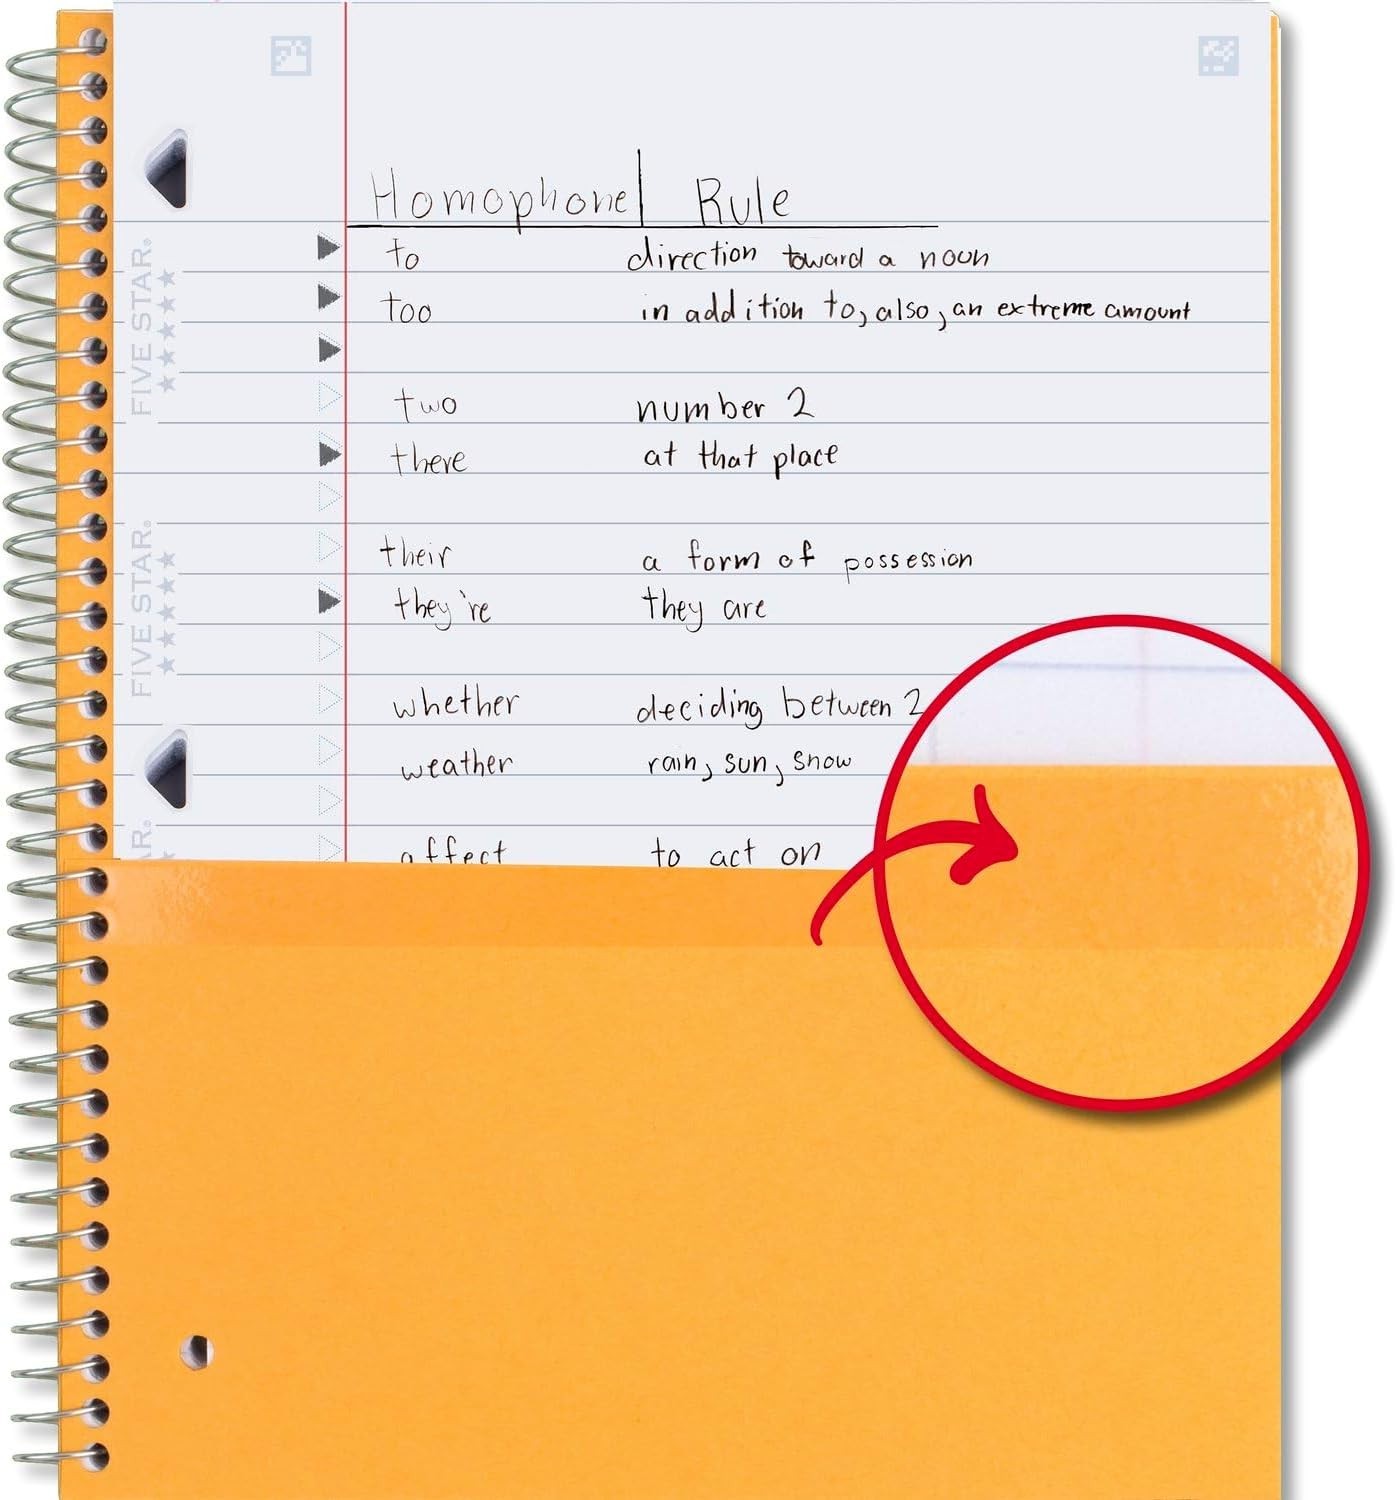 Homophone Rule
to direction toward a noun
too in addition to, also, an extreme amount
two number 2
there at that place
their a form of possession
they're they are
whether deciding between 2
weather rain, sun, snow
affect to act on
FIVE STAR®
FIVE STAR®
AR®